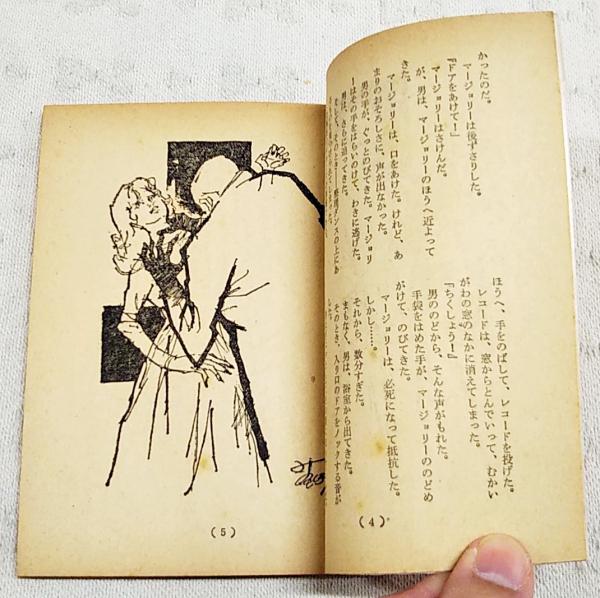 かったのだ。
マージョリーは後ずさりした。
『ドアをあけて！』
マージョリーはさけんだ。
が、男は、マージョリーのほうへ近よって
きた。
マージョリーは、口をあけた。けれど、あ
まりのおそろしさに、声が出なかった。
男の手が、ぐっとのびてきた。マージョリ
ーはその手をはらいのけて、わきに逃げた。
男は、さらに迫ってきた。
ほうへ、手をのばして、レコードを投げた。
レコードは、窓からとんでいって、むかい
がわの窓のなかに消えてしまった。
『ちくしょう！』
男ののどから、そんな声がもれた。
手袋をはめた手が、マージョリーののどめ
がけて、のびてきた。
マージョリーは、必死になって抵抗した。
しかし……。
それから、数分すぎた。
まもなく、男は、浴室から出てきた。
そのとき、入り口のドアをノックする音が
した。
(4)
(5)